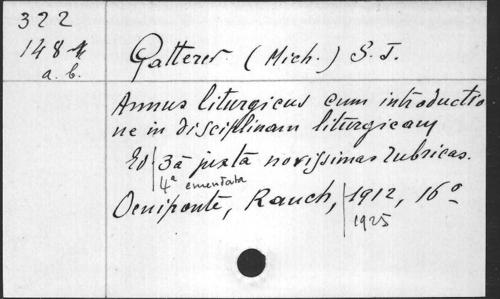 322
148
a. b.
Gatterer (Mich.) S. J.
Annus liturgicus cum introductio
ne in disciplinam liturgicam
Ed 3a juxta novissimas rubricas.
4a emendata
Oeniponte, Rauch, 1912, 16o
1925